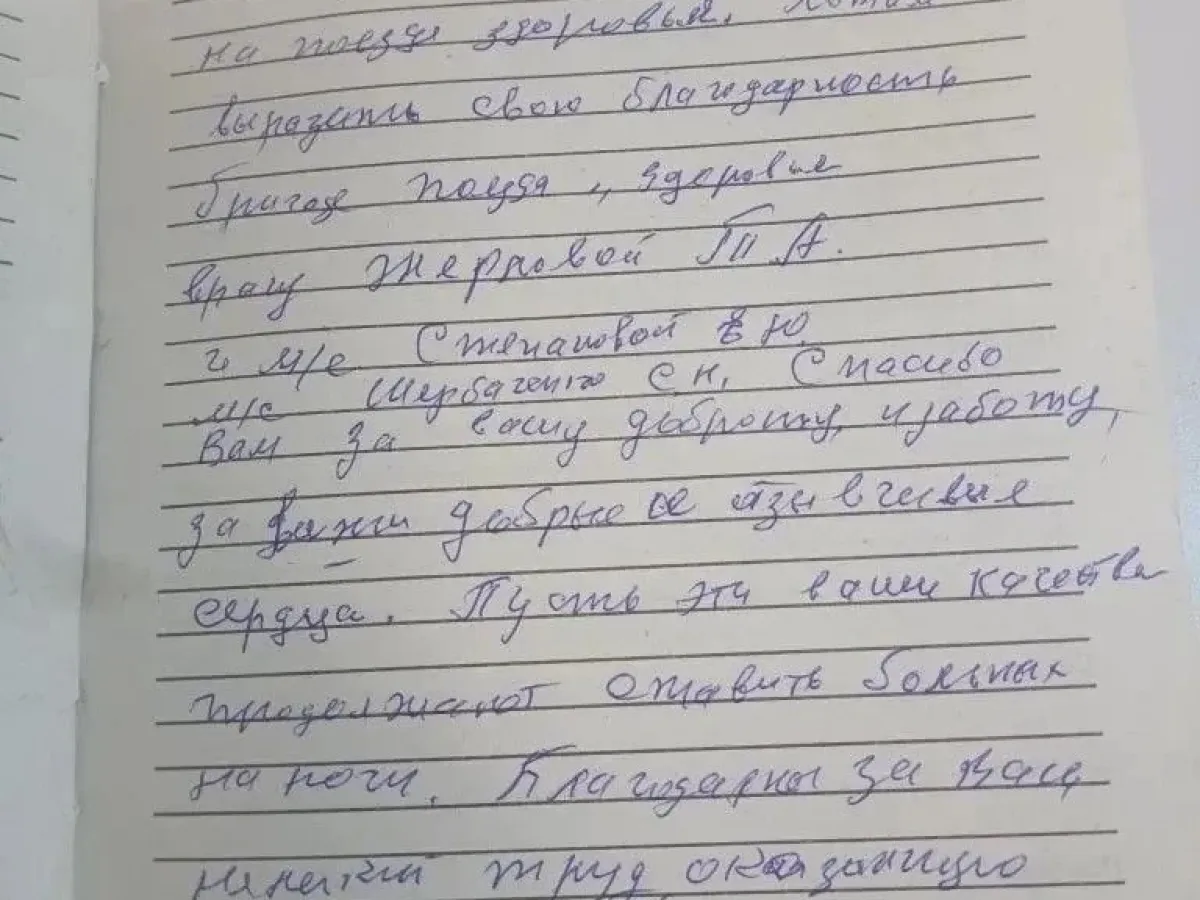 на поезде здоровья. Хотим
выразить свою благодарность
бригаде поезда „Здоровье
врачу Жерновой Т А.
и м/с Степановой Ю
м/с Щербаченко С Н. Спасибо
Вам за вашу доброту, и заботу,
за ваши добрые отзывчивые
сердца. Пусть эти ваши качества
продолжают ставить больных
на ноги. Благодарны за Ваш
нелегкий труд, оказанную